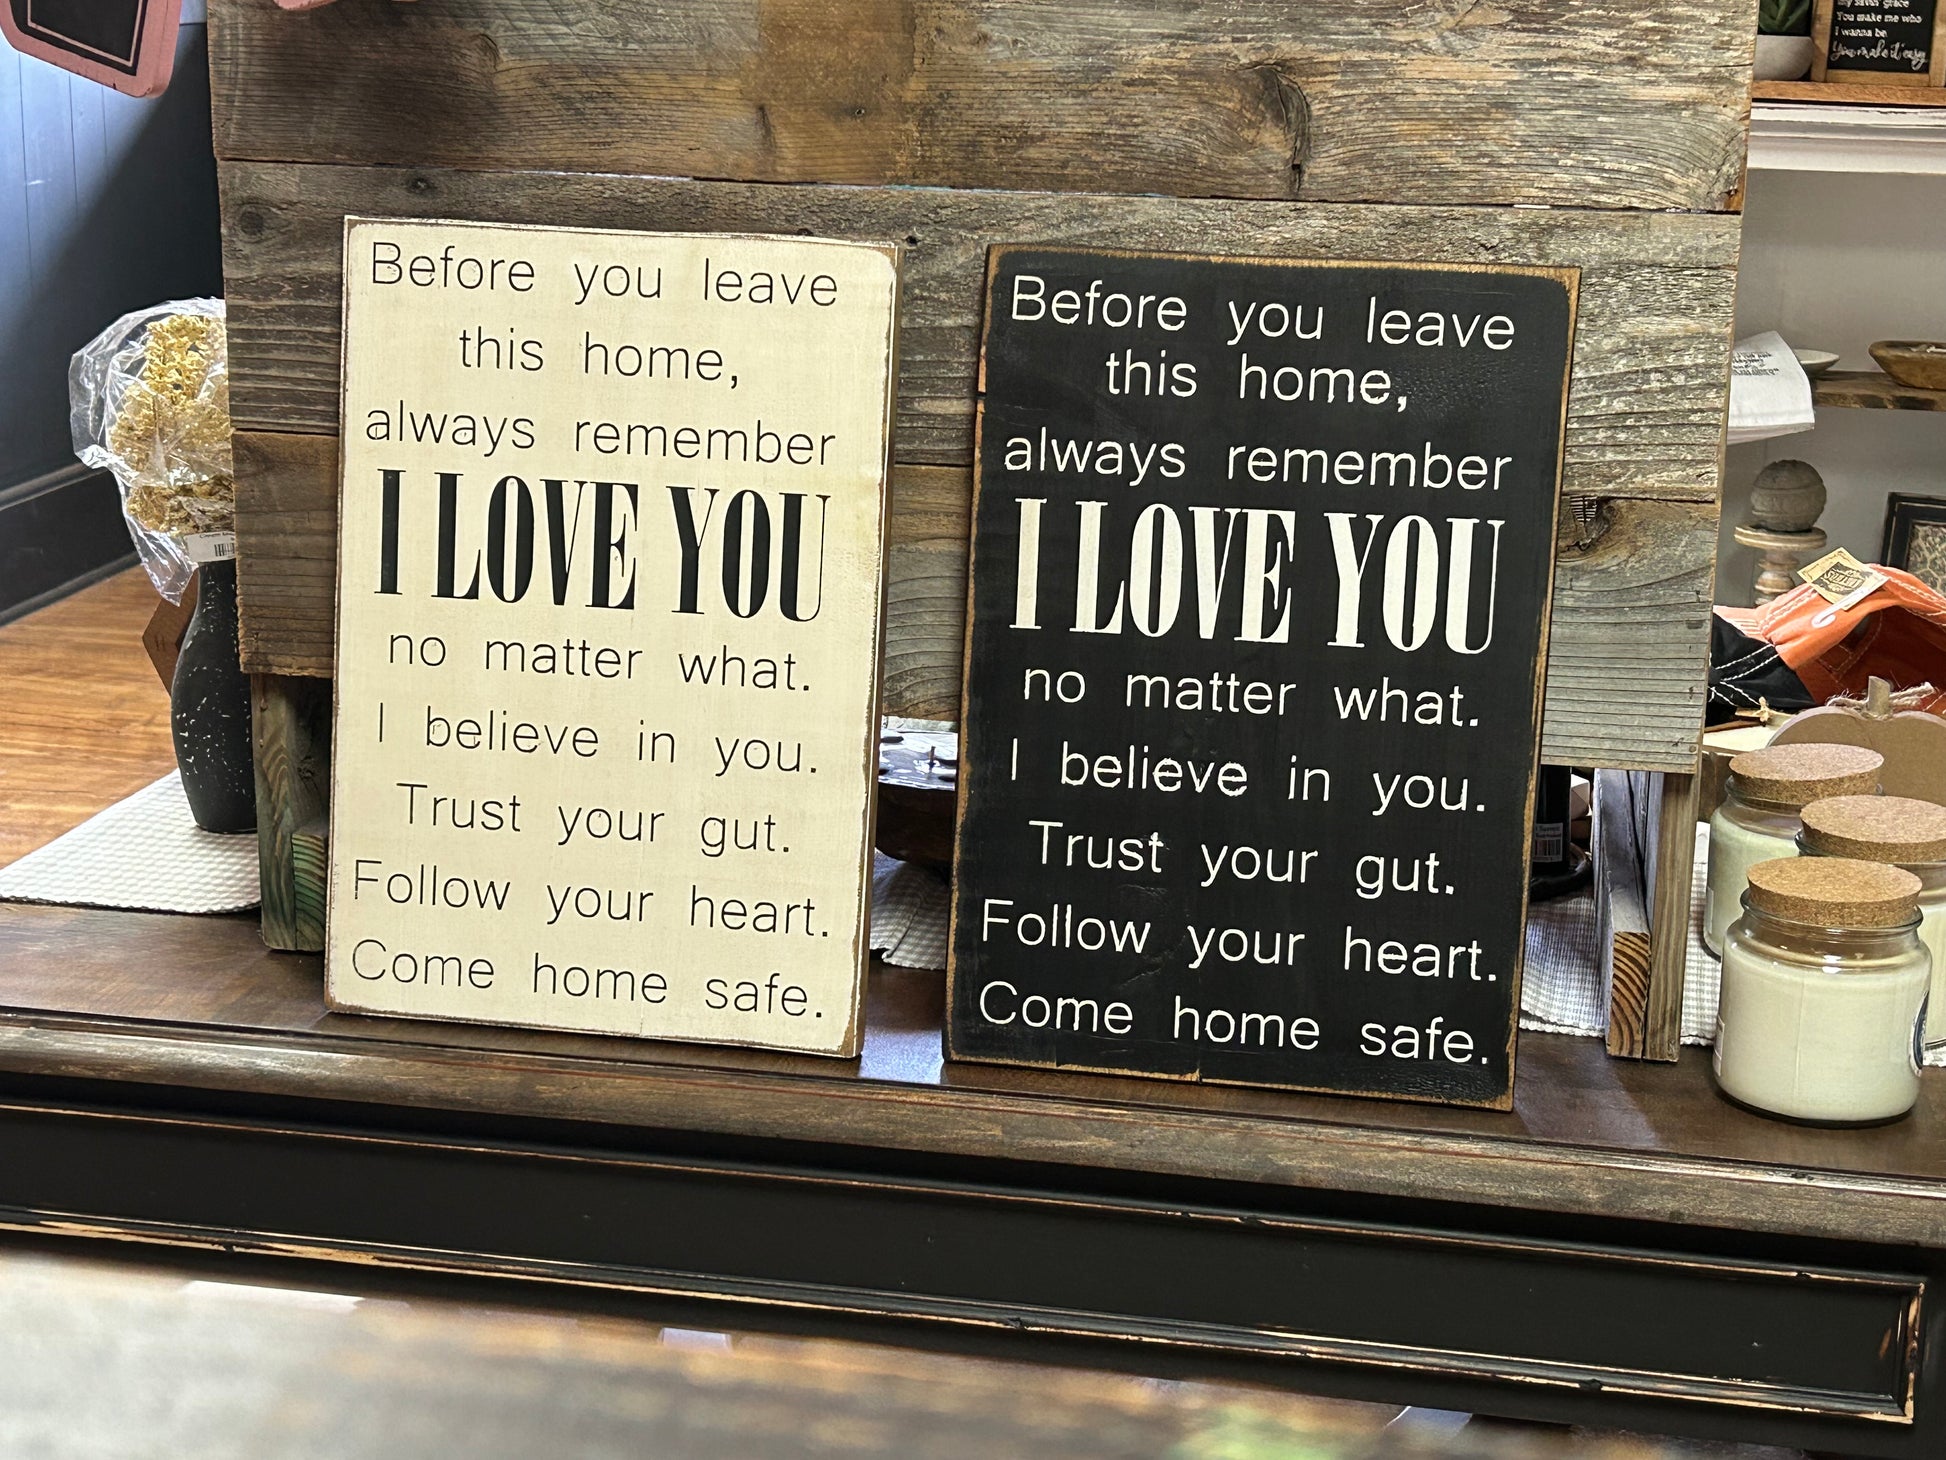 Before you leave
this home,
always remember
I LOVE YOU
no matter what.
I believe in you.
Trust your gut.
Follow your heart.
Come home safe.
Before you leave
this home,
always remember
I LOVE YOU
no matter what.
I believe in you.
Trust your gut.
Follow your heart.
Come home safe.
my savin' grace
You make me who
I wanna be
You make it easy